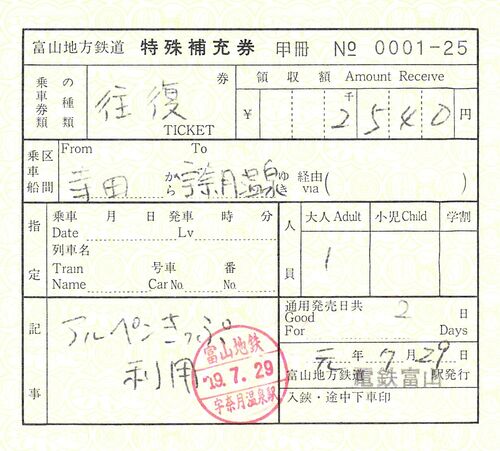 富山地方鉄道 特殊補充券 甲冊 № 0001-25
乗車券類の種類 往復 券 TICKET
領収額 Amount Receive
￥ 千 2540 円
乗車船区間 From To
寺田 から 宇奈月温泉 ゆき 経由 via ( )
指定
乗車 月 日 発車 時 分
Date Lv
列車名
Train 号車 番
Name Car No. No.
人員
大人 Adult 小児 Child 学割
1
記事
アルペンきっぷ
利用
通用発売日共 2 日
Good
For Days
元 年 7 月 29 日
富山地方鉄道 電鉄富山 駅発行
入鋏・途中下車印
富山地鉄
'19.7.29
宇奈月温泉駅